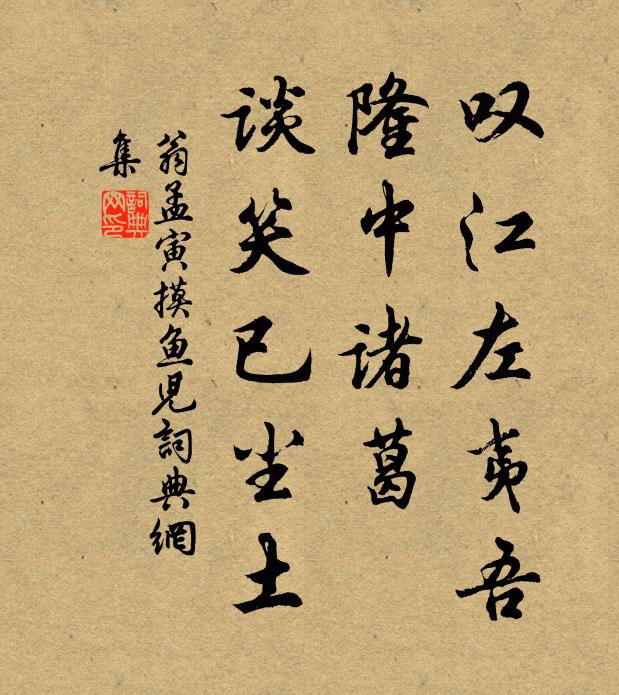 叹江左夷吾
隆中诸葛
谈笑已尘土
翁孟寅摸鱼児詞典網
集
詞典网印